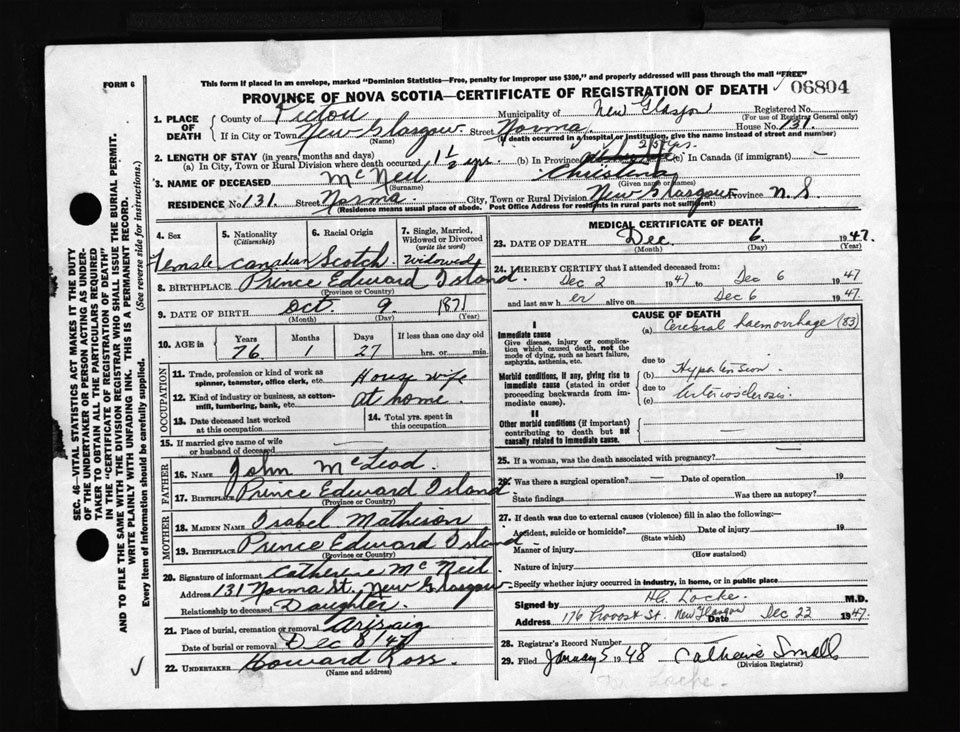 This form if placed in an envelope, marked "Dominion Statistics—Free, penalty for improper use $300," and properly addressed will pass through the mail "FREE"
FORM 6
PROVINCE OF NOVA SCOTIA—CERTIFICATE OF REGISTRATION OF DEATH 06804
1. PLACE OF DEATH
County of Pictou Municipality of New Glasgow Registered No.
(For use of Registrar General only)
If in City or Town New Glasgow Street Norma House No. 131
(Name) (If death occurred in a hospital or institution, give the name instead of street and number)
2. LENGTH OF STAY (in years, months and days) 25 yrs.
(a) In City, Town or Rural Division where death occurred 1 1/2 yrs. (b) In Province (c) In Canada (if immigrant) —
3. NAME OF DECEASED McNeil Christena
(Surname) (Given name or names)
RESIDENCE No. 131 Street Norma City, Town or Rural Division New Glasgow Province N.S.
(Residence means usual place of abode. Post Office Address for residents in rural parts not sufficient)
4. Sex 5. Nationality (Citizenship) 6. Racial Origin 7. Single, Married, Widowed or Divorced (write the word)
Female Canadian Scotch Widowed
8. BIRTHPLACE Prince Edward Island
(Province or Country)
9. DATE OF BIRTH Oct. 9 1871
(Month) (Day) (Year)
10. AGE in Years Months Days If less than one day old
76 1 27 hrs. or min.
OCCUPATION
11. Trade, profession or kind of work as spinner, teamster, office clerk, etc. House wife
12. Kind of industry or business, as cotton-mill, lumbering, bank, etc. at home
13. Date deceased last worked at this occupation 14. Total yrs. spent in this occupation
15. If married give name of wife or husband of deceased
FATHER
16. NAME John McLeod
17. BIRTHPLACE Prince Edward Island
(Province or Country)
MOTHER
18. MAIDEN NAME Isabel Matheson
19. BIRTHPLACE Prince Edward Island
(Province or Country)
20. Signature of informant Catherine McNeil
Address 131 Norma St. New Glasgow
Relationship to deceased Daughter
21. Place of burial, cremation or removal Arisaig
Date of burial or removal Dec 8 '47
22. UNDERTAKER Howard Ross
(Name and address)
MEDICAL CERTIFICATE OF DEATH
23. DATE OF DEATH Dec. 6. 1947.
(Month) (Day)
24. I HEREBY CERTIFY that I attended deceased from:
Dec 2 1947 to Dec 6 1947
and last saw h er alive on Dec 6 1947.
CAUSE OF DEATH
I
Immediate cause
Give disease, injury or complication which caused death, not the mode of dying, such as heart failure, asphyxia, asthenia, etc.
(a) Cerebral haemorrhage (83)
due to
Morbid conditions, if any, giving rise to immediate cause (stated in order proceeding backwards from immediate cause).
(b) Hypertension
due to
(c) Arteriosclerosis
II
Other morbid conditions (if important) contributing to death but not causally related to immediate cause.
25. If a woman, was the death associated with pregnancy?
26. Was there a surgical operation? — Date of operation 19
State findings Was there an autopsy?
27. If death was due to external causes (violence) fill in also the following:—
Accident, suicide or homicide? Date of injury 19
(State which)
Manner of injury
(How sustained)
Nature of injury
Specify whether injury occurred in industry, in home, or in public place
Signed by H.G. Locke. M.D.
Address 176 Provost St. New Glasgow Date Dec 23 1947.
28. Registrar's Record Number
29. Filed January 5 1948 Catherine Small
(Division Registrar)
SEC. 46—VITAL STATISTICS ACT MAKES IT THE DUTY
OF THE UNDERTAKER OR PERSON ACTING AS UNDERTAKER
TO OBTAIN ALL THE PARTICULARS REQUIRED
IN THE "CERTIFICATE OF REGISTRATION OF DEATH"
AND TO FILE THE SAME WITH THE DIVISION REGISTRAR WHO SHALL ISSUE THE BURIAL PERMIT.
WRITE PLAINLY WITH UNFADING INK. THIS IS A PERMANENT RECORD.
Every item of information should be carefully supplied. (See reverse side for instructions.)